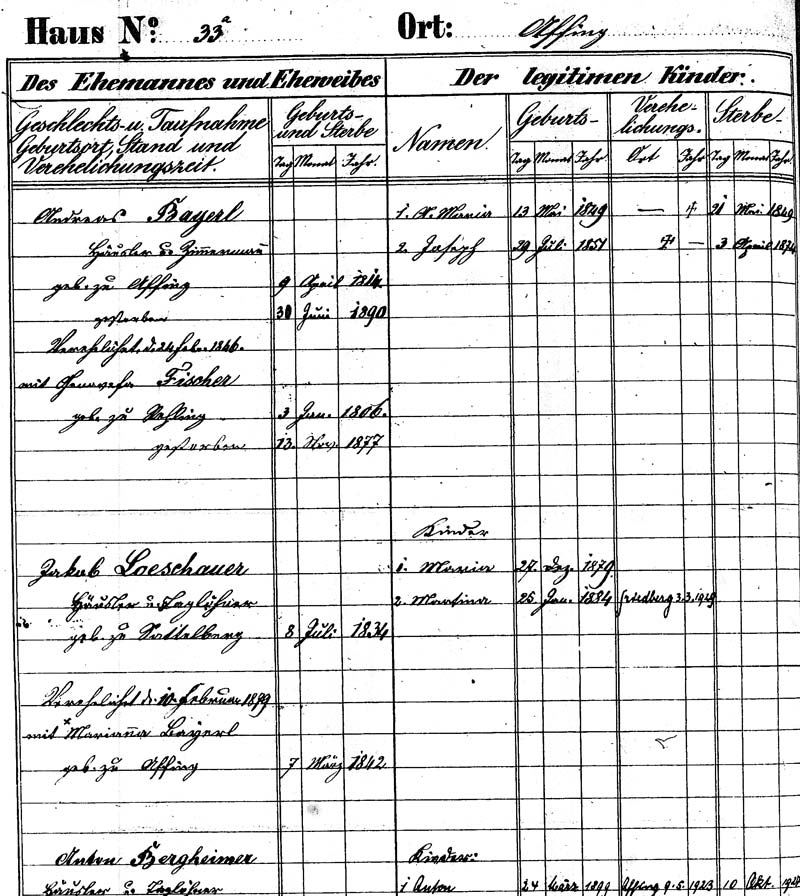 Haus No: 33a Ort: Affing
Des Ehemannes und Eheweibes Der legitimen Kinder.
Geschlechts- u. Taufnahme Geburtsort, Stand und Verehelichungszeit.
Geburts- und Sterbe
Tag Monat Jahr
Namen.
Geburts-
Tag Monat Jahr
Verehe-lichungs.
Ort Jahr
Sterbe-
Tag Monat Jahr
Andreas Bayerl 1. A. Maria 13 Mai 1849 — † 21 Mai 1849
Häusler u. Zimmermañ 2. Joseph 29 Juli 1851 † — 3 April 1874
geb. zu Affing 9 April 1814
gestorben 30 Juni 1890
Verehelicht d. 24 Feb. 1846.
mit Genovefa Fischer
geb. zu Rehling 3 Jan. 1806.
gestorben 13. Nov. 1877
Kinder
Jakob Loeschauer 1. Maria 27. Dez. 1879
Häusler u. Taglöhner 2. Martina 25 Jan. 1884 Friedberg 3.3.
geb. zu Sattelberg 8 Juli 1834
Verehelicht d. 10. Februar 1879
mit Mariañа Bayerl
geb. zu Affing 7 März 1842
Anton Bergheimer Kinder:
Häusler u. Taglöhner 1 Anton 24 März 1899 Affing 9.5.1923 10 Okt.